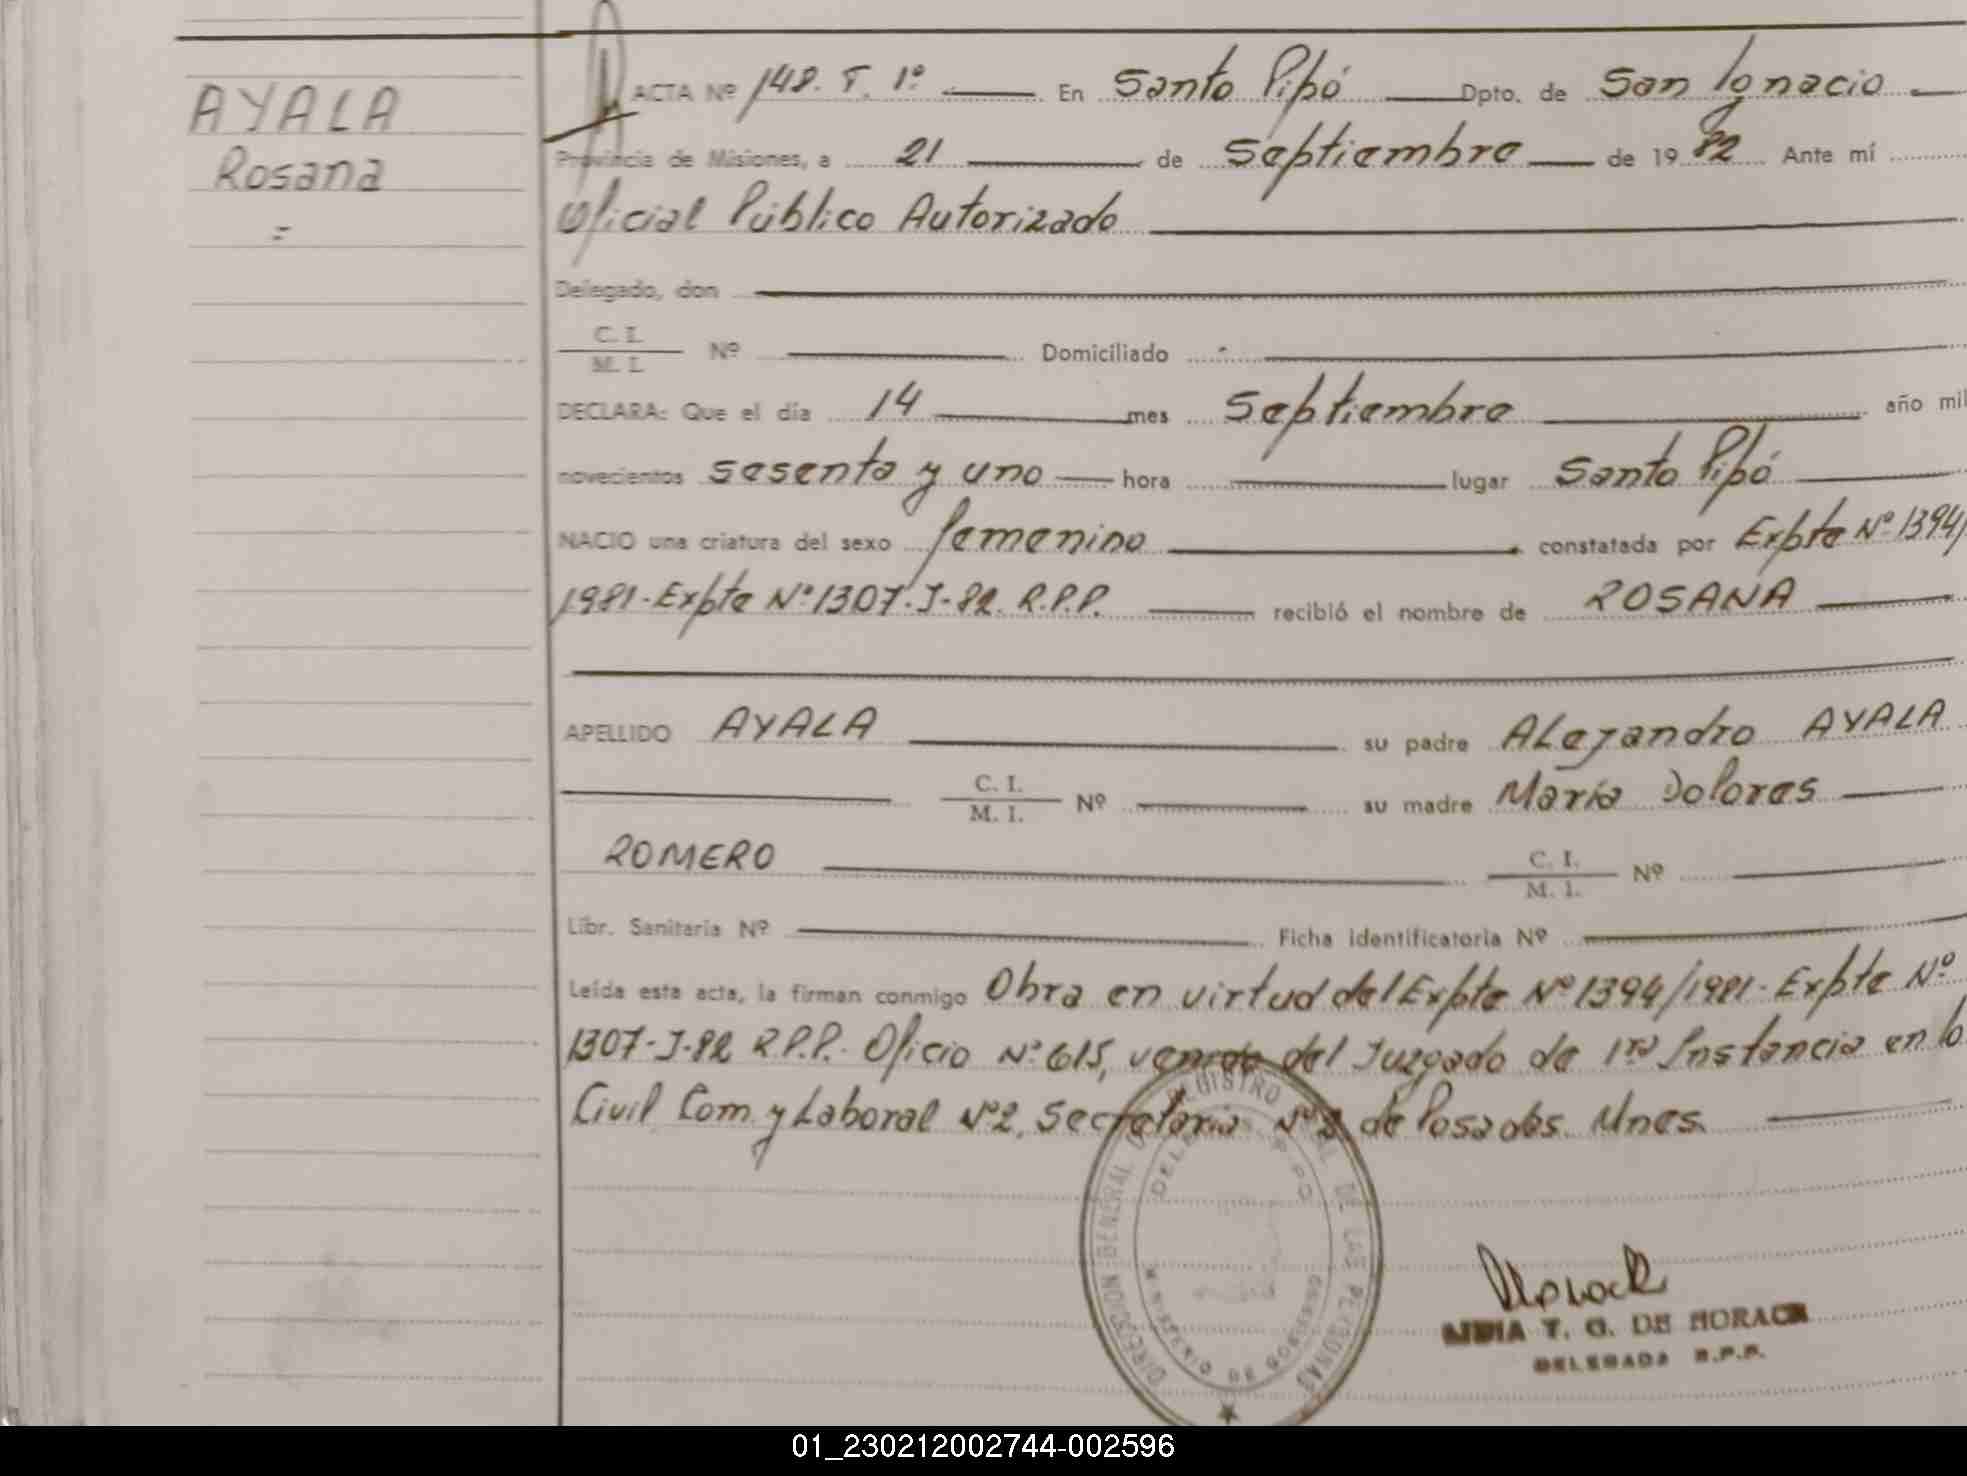 AYALA
Rosana
=
ACTA Nº 148. T. 1º. En Santo Pipó Dpto. de San Ignacio
Provincia de Misiones, a 21 de Septiembre de 1982 Ante mí
Oficial Público Autorizado
Delegado, don
C. I.
M. I. Nº Domiciliado
DECLARA: Que el día 14 mes Septiembre año mil
novecientos sesenta y uno hora lugar Santo Pipó
NACIO una criatura del sexo femenino constatada por Expte Nº 1394/
1981-Expte Nº 1307-J-82 R.P.P. recibió el nombre de ROSANA
APELLIDO AYALA su padre Alejandro AYALA
C. I.
M. I. Nº su madre María Dolores
ROMERO C. I.
M. I. Nº
Libr. Sanitaria Nº Ficha identificatoria Nº
Leída esta acta, la firman conmigo Obra en virtud del Expte Nº 1394/1981-Expte Nº
1307-J-82 R.P.P. Oficio Nº 615, del Juzgado de 1ra Instancia en lo
Civil Com. y Laboral Nº 2, Secretaria Nº de Posadas. Mnes.
DIRECCION GENERAL REGISTRO DE LAS PERSONAS
MINISTERIO DE GOBIERNO
T. G. DE HORACK
DELEGADA R.P.P.
01_230212002744-002596